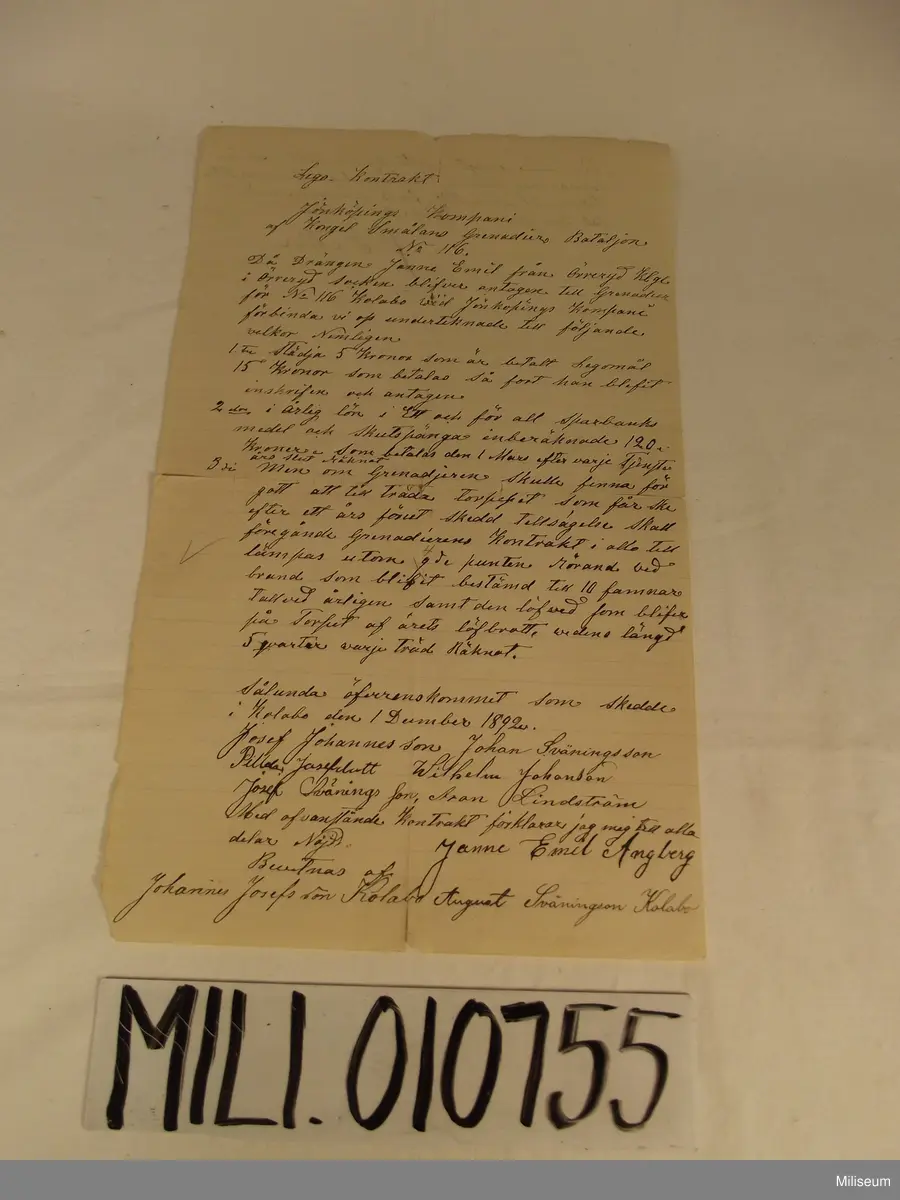 Lego- Kontrakt
Jönköpings Kompani
af Kongl Smålans Grenadiers Bataljon
No 116.
Då Drängen Janne Emil från Örreryd
i Örreryd socken blifver antagen till Grenadier
för No 116 Kolabo vid Jönköpings Kompani
förbinda vi os underteknade till följande
velkor Nemligen
1 städja 5 Kronor som är betalt Legomål
15 Kronor som betalas så fort han blifit
inskrifen och antagen
2 i årlig lön i Ett och för all sparbanks
medel och skutspänga inberäknade 120
Kroner som betalas den 1 Mars efter varje Tjenste
års slut Räknat
3 Men om Grenadjeren skulle finna för
gott att till träda torpet som får ske
efter ett års förut skedd tellsägelse skall
föregånde Grenadierens Kontrakt i allo till
lämpas utom 4 de punten Rörand ved
brand som blifit bestämd till 10 famnar
årligen samt den löfved som blifer
på Torpet af årets löfbrott, vedens längd
5 qvarter varje träd Räknat.
Sålunda öfverenskommet som skedde
i Kolabo den 1 Dember 1892.
Josef Johannes son Johan Sväningsson
Wilhelm Johanson
Josef Svänings son, Aron Lindström
Med ofvanstånde Kontrakt förklarar jag mig till alla
delar Nöjd.
Janne Emil Angberg
Bevitnas af
Johannes Josefs son Kolabo August Sväningson Kolabo
MILI.010755
Miliseum